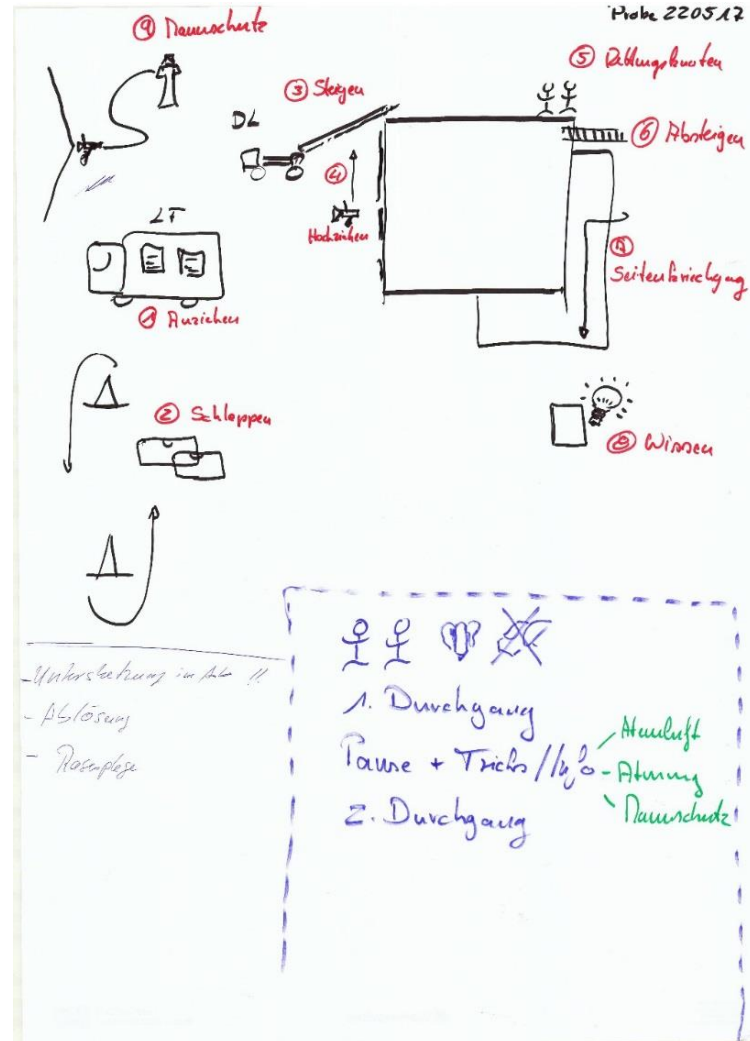 Probe 220517
⑨ Mannschutz
③ Steigen
⑤ Rettungsknoten
DL
⑥ Absteigen
④
Hochziehen
LF
⑦
Seitenkriechgang
① Anziehen
② Schleppen
⑧ Wissen
- Unterstützung im !!
- Ablösung
1. Durchgang
Pause + Tricks // H₂O
Atemluft
- Atmung
Mannschutz
2. Durchgang